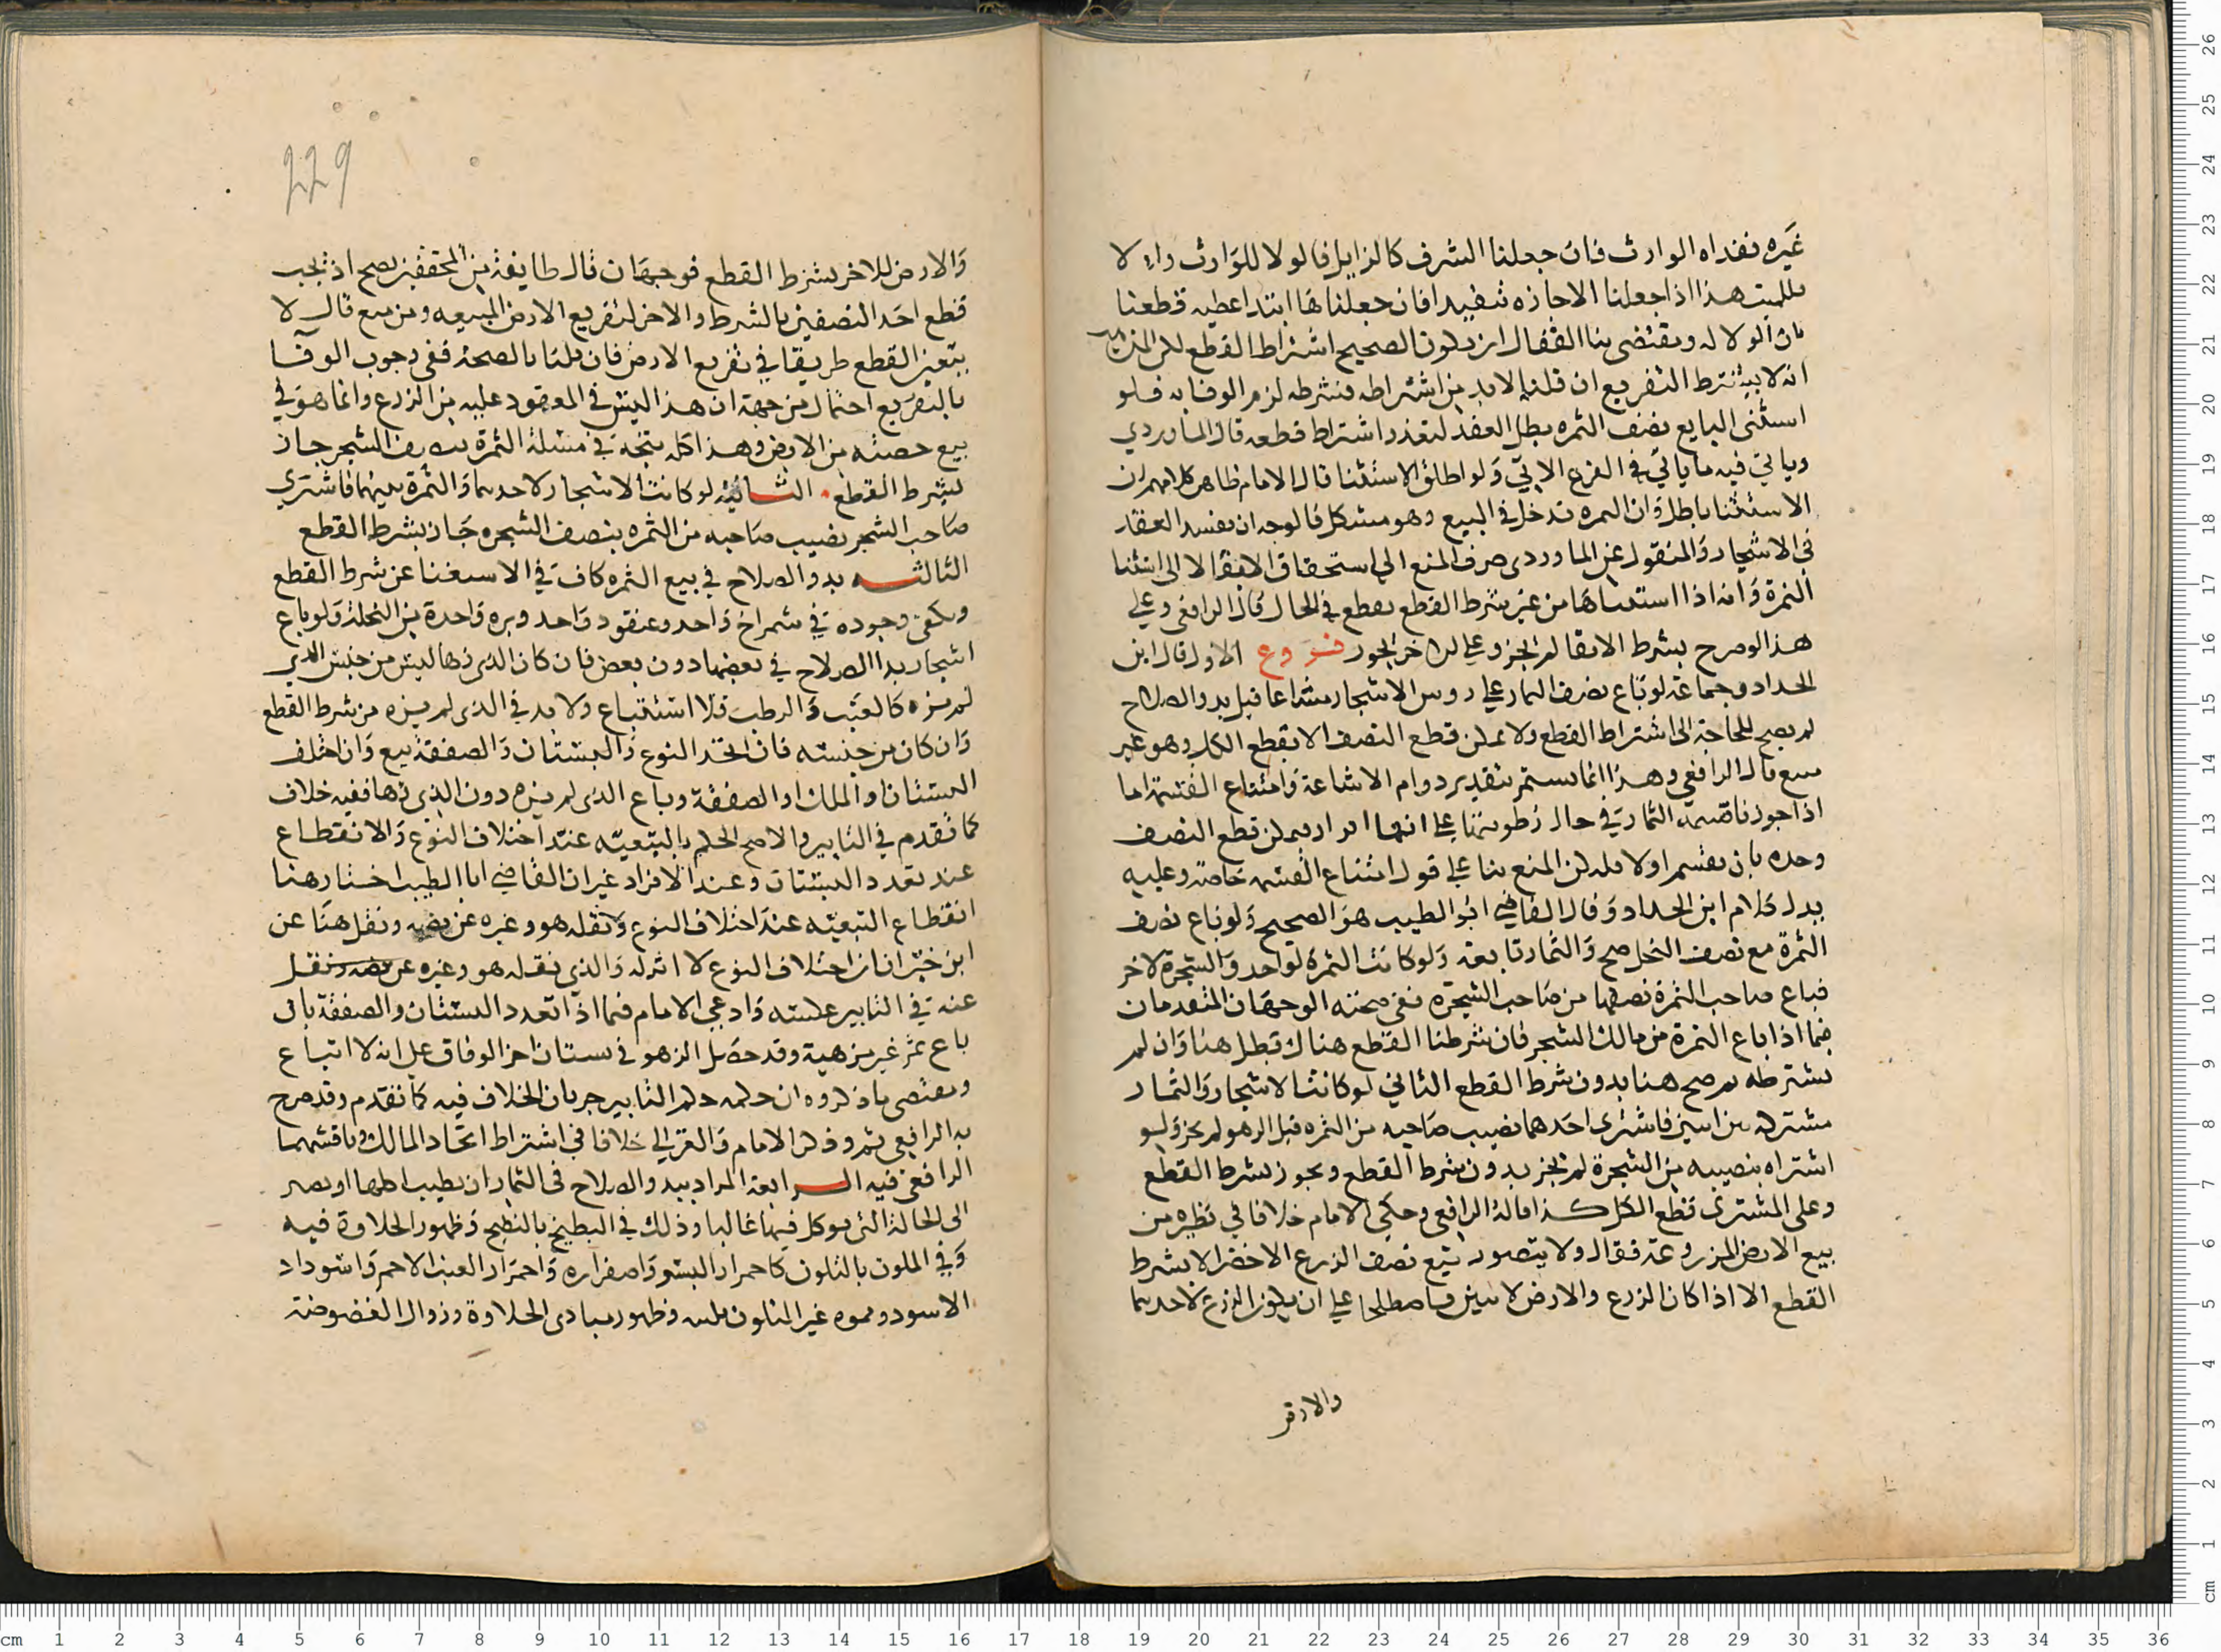 غيره نفداه الوارث فان جعلنا المشرف كالزايل فالولا للوارث والا لا
فللميت هذا اذا جعلنا الاجازه تنفيدا فان جعلناها ابتدا عطيه قطعنا
بان الولا له ومقتضى بنا القفال ان يكون الصحيح اشتراط القطع لكن المذهب
انه لا يشترط التفريع ان قلنا لا بد من اشتراطه فشرطه لزم الوفا به فلو
استثنى البايع نصف الثمره بطل العقد لتعذر اشتراط قطعه قال الماوردي
وياتي فيه ما ياتي في الفرع الاتي ولو اطلق الاستثنا قال الامام ظاهر كلامهم ان
الاستثنا باطل وان الثمره تدخل في البيع وهو مشكل فالوجه ان يفسد العقد
في الاشجار والمنقول عن الماوردي صرف المنع الى استحقاق الابقا لا الى استثنا
الثمرة وانه اذا استثناها من غير شرط القطع يقطع في الحال قال الرافعي وعلى
هذا لو صرح بشرط الابقا لم يجز وعلى الاخر يجوز فروع الاول قال ابن
الحداد وجماعة لو باع نصف الثمار على روس الاشجار مشاعا قبل بدو الصلاح
لم يصح للحاجة الى اشتراط القطع ولا يمكن قطع النصف الا بقطع الكل وهو غير
مبيع قال الرافعي وهذا انما يستمر بتقدير دوام الاشاعة وامتناع القسمة اما
اذا جوزنا قسمة الثمار في حال رطوبتها بنا على انها افراز فيمكن قطع النصف
وحده بان يقسم اولا فليكن المنع بنا على قول امتناع القسمه خاصة وعليه
يدل كلام ابن الحداد وقال القاضي ابو الطيب هو الصحيح ولو باع نصف
الثمرة مع نصف النخل صح والثمار تابعة ولو كانت الثمرة لواحد والشجرة لاخر
فباع صاحب الثمرة نصفها من صاحب الشجرة ففي صحته الوجهان المتقدمان
فيما اذا باع الثمرة من مالك الشجر فان شرطنا القطع هناك بطل هنا وان لم
نشترطه ثم صح هنا بدون شرط القطع الثاني لو كانت الاشجار والثمار
مشتركه بين اثنين فاشترى احدهما نصيب صاحبه من الثمره قبل الزهو لم يجز ولو
اشتراه بنصيبه من الشجرة لم يجز بدون شرط القطع ويجوز بشرط القطع
وعلى المشتري قطع الكل كذا قاله الرافعي وحكى الامام خلافا في نظيره من
بيع الارض المزروعة فقال ولا يتصور بيع نصف الزرع الاخضر الا بشرط
القطع الا اذا كان الزرع والارض لاثنين فاصطلحا على ان يكون الزرع لاحدهما
والارض
229
والارض للاخر بشرط القطع فوجهان قال طايفة من المحققين يصح اذ يجب
قطع احد النصفين بالشرط والاخر لتفريغ الارض المبيعه ومن منع قال لا
يتعين القطع طريقا في تفريغ الارض فان قلنا بالصحة ففي وجوب الوفا
بالتفريغ احتمال من جهة ان هذا ليس في المعقود عليه من الزرع وانما هو في
بيع حصته من الارض وهذا كله يتجه في مسئلة الثمرة بنصف الشجر جاز
بشرط القطع الثانية لو كانت الاشجار لاحدهما والثمرة بينهما فاشترى
صاحب الشجر نصيب صاحبه من الثمره بنصف الشجره جاز بشرط القطع
الثالثه بدو الصلاح في بيع الثمره كاف في الاستغنا عن شرط القطع
ويكفي وجوده في شمراخ واحد وعنقود واحد وبره واحدة من النخلة ولو باع
اشجار بدا الصلاح في بعضها دون بعض فان كان الذي زها ليس من جنس الذي
لم يزه كالعنب والرطب فلا استتباع ولا بد في الذي لم يزه من شرط القطع
وان كان من جنسه فان اتحد النوع والبستان والصفقة تبع وان اختلف
البستان او الملك او الصفقة وباع الذي لم يزه دون الذي زها ففيه خلاف
كما تقدم في التابير والاصح الحكم بالتبعيه عند اختلاف النوع والانقطاع
عند تعدد البستان وعند الافراد غير ان القاضي ابا الطيب اختار هنا
انقطاع التبعيه عند اختلاف النوع ونقله هو وغيره عن نصه ونقل هنا عن
ابن خيران ان اختلاف النوع لا اثر له والذي نقله هو وغيره عن نصه ونقل
عنه في التابير عكسه وادعى الامام فيما اذا تعدد البستان والصفقة بان
باع ثمر غير مزهية وقد حصل الزهو في بستان اخر الوفاق على انه لا اتباع
ومقتضى ما ذكروه ان حكمه حكم التابير جريان الخلاف فيه كما تقدم وقد صرح
به الرافعي ثم وذكر الامام والغزالي خلافا في اشتراط اتحاد المالك وناقشهما
الرافعي فيه الرابعة المراد ببدو الصلاح في الثمار ان يطيب اكلها او يصير
الى الحالة التي يوكل فيها غالبا وذلك في البطيخ بالنضج وظهور الحلاوة فيه
وفي الملون بالتلون كاحمرار البسر واصفراره واحمرار العنب الاحمر واسوداد
الاسود وتموه غير المتلون ولينه وظهور مبادى الحلاوة وزوال العفوصة